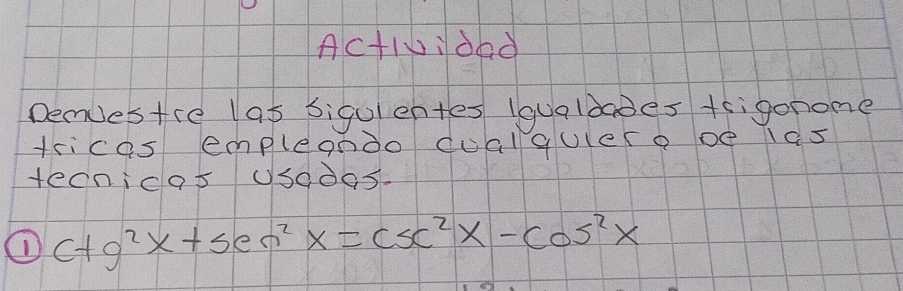 Actividad
Demuestre las siguientes igualdades trigonome
tricas empleando cualquiera de las
tecnicas usadas.
① ctg²x + sen²x = csc²x - cos²x